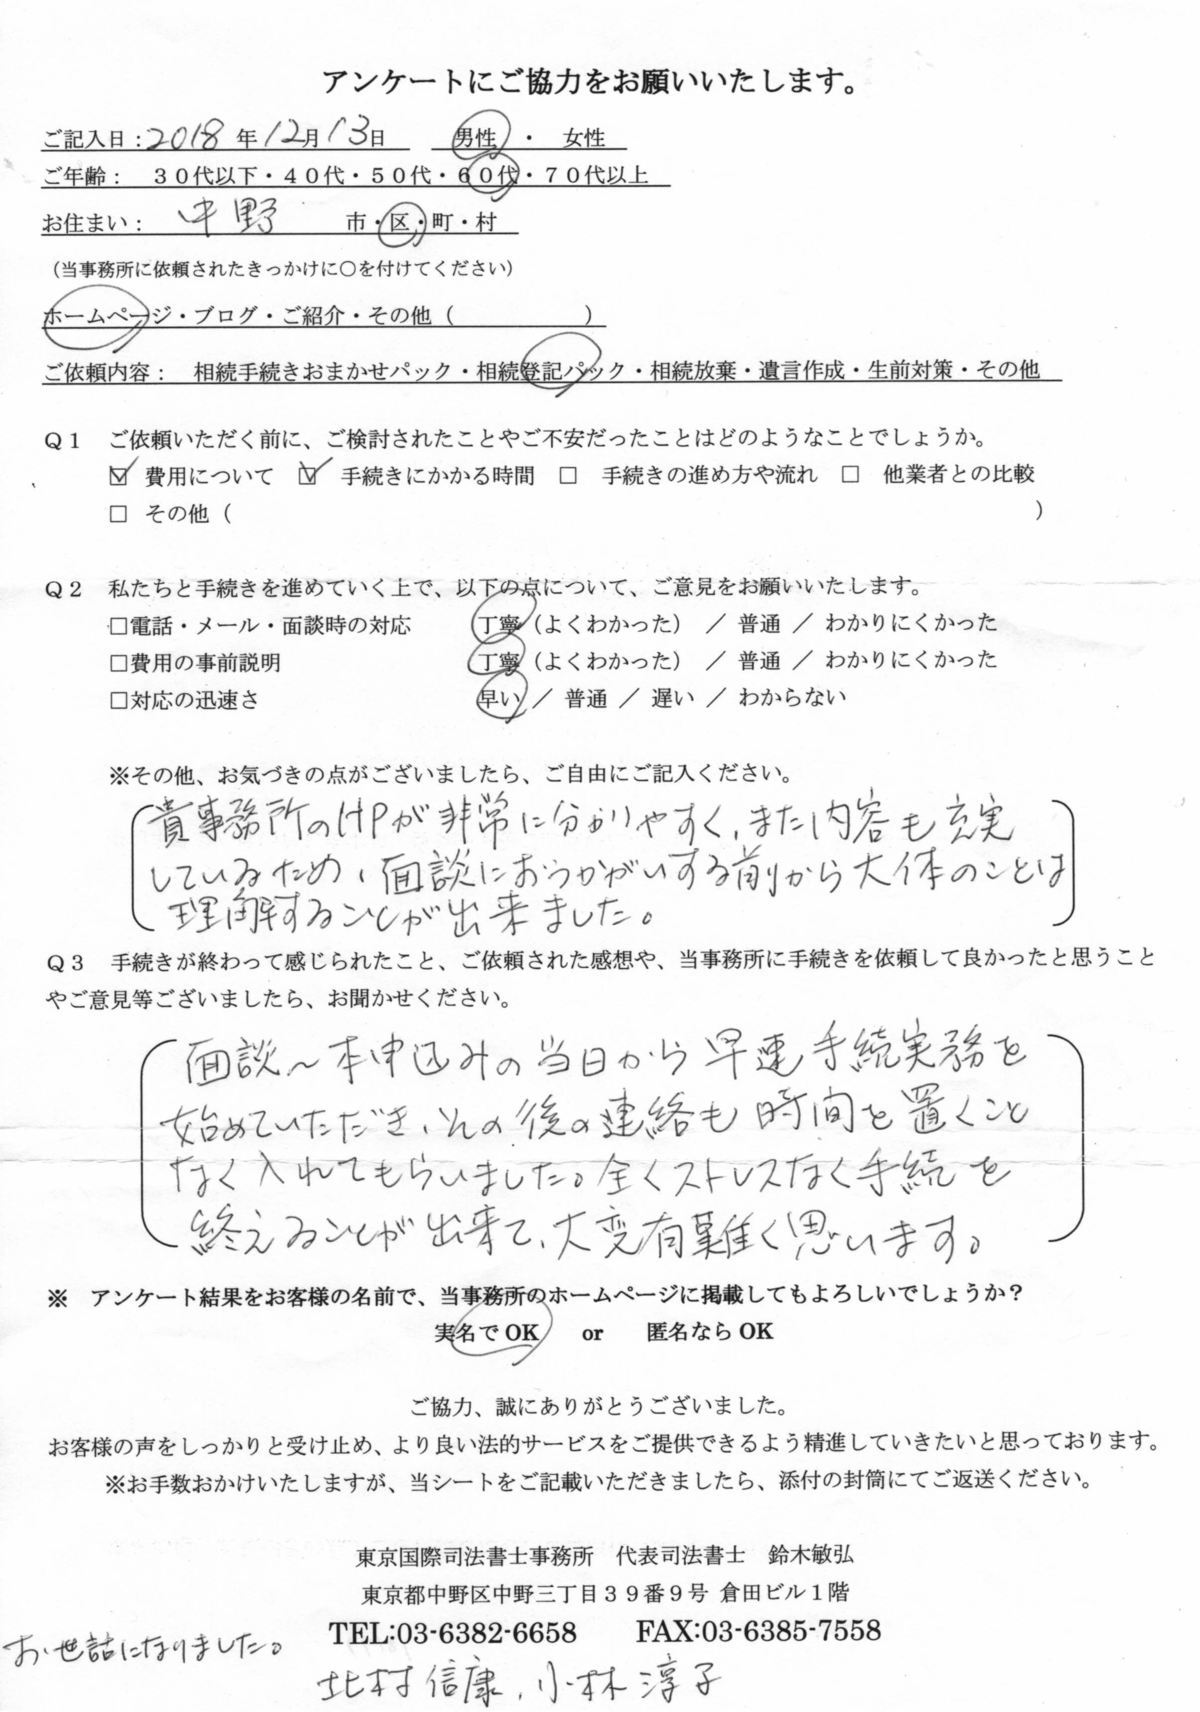 アンケートにご協力をお願いいたします。
ご記入日：2018 年 12月 13日　男性 ・ 女性
ご年齢：　３０代以下・４０代・５０代・６０代・７０代以上
お住まい：　中野　市・区・町・村
（当事務所に依頼されたきっかけに○を付けてください）
ホームページ・ブログ・ご紹介・その他（　　　　　　）
ご依頼内容：　相続手続きおまかせパック・相続登記パック・相続放棄・遺言作成・生前対策・その他
Ｑ１　ご依頼いただく前に、ご検討されたことやご不安だったことはどのようなことでしょうか。
☑ 費用について　☑ 手続きにかかる時間　□ 手続きの進め方や流れ　□ 他業者との比較
□ その他（　　　　　　）
Ｑ２　私たちと手続きを進めていく上で、以下の点について、ご意見をお願いいたします。
□電話・メール・面談時の対応　丁寧（よくわかった） ／ 普通 ／ わかりにくかった
□費用の事前説明　丁寧（よくわかった） ／ 普通 ／ わかりにくかった
□対応の迅速さ　早い ／ 普通 ／ 遅い ／ わからない
※その他、お気づきの点がございましたら、ご自由にご記入ください。
貴事務所のHPが非常に分かりやすく、また内容も充実
しているため、面談におうかがいする前から大体のことは
理解することが出来ました。
Ｑ３　手続きが終わって感じられたこと、ご依頼された感想や、当事務所に手続きを依頼して良かったと思うこと
やご意見等ございましたら、お聞かせください。
面談～本申込みの当日から早速手続実務を
始めていただき、その後の連絡も時間を置くこと
なく入れてもらいました。全くストレスなく手続を
終えることが出来て、大変有難く思います。
※　アンケート結果をお客様の名前で、当事務所のホームページに掲載してもよろしいでしょうか？
実名で OK　or　匿名なら OK
ご協力、誠にありがとうございました。
お客様の声をしっかりと受け止め、より良い法的サービスをご提供できるよう精進していきたいと思っております。
※お手数おかけいたしますが、当シートをご記載いただきましたら、添付の封筒にてご返送ください。
東京国際司法書士事務所　代表司法書士　鈴木敏弘
東京都中野区中野三丁目３９番９号 倉田ビル１階
TEL:03-6382-6658　FAX:03-6385-7558
お世話になりました。
北村信康、小林淳子